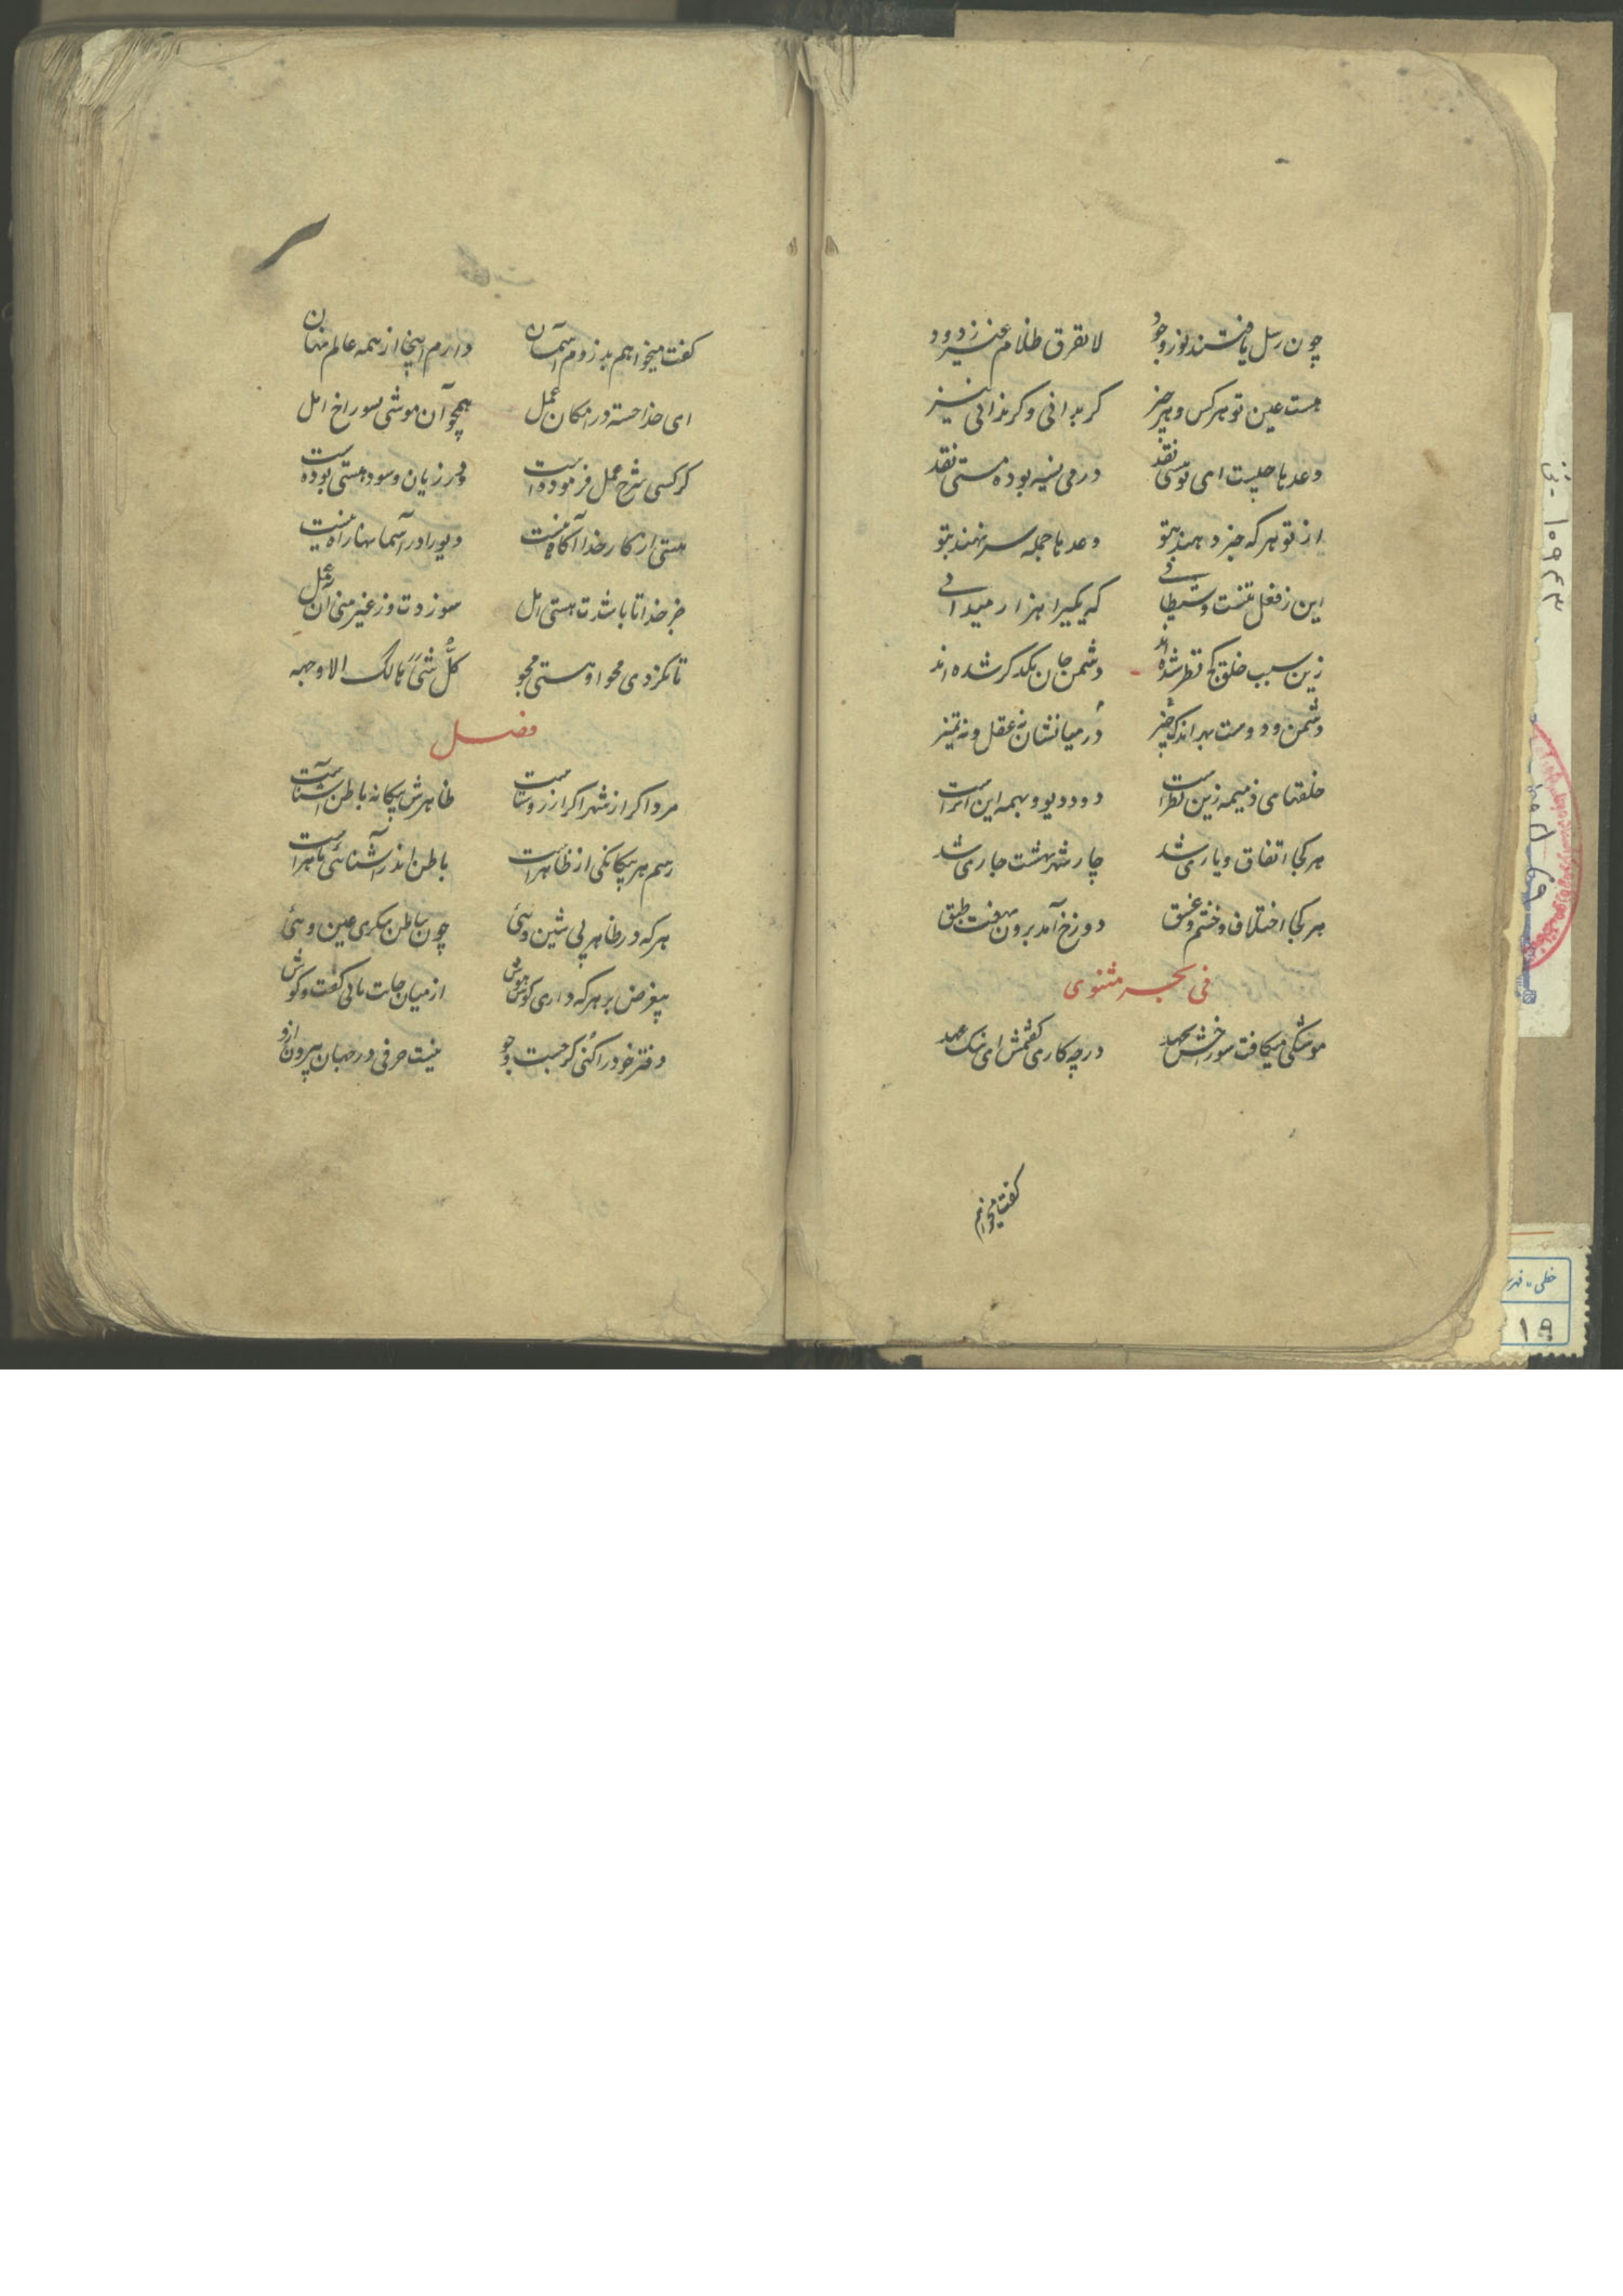 چون رسل یافتند نور وجود لا نفرق ظلام غیر زدود
هست عین تو هر کس و هر چیز کر بدانی و کر ندانی نیز
وعدها چیست ای تو هستی نقد در می نسیه بوده مستی نقد
از تو هر که جز دهند بتو وعدها جمله سر نهند بتو
این ز فعل تنست و شیطانی که یکیرا هزار میدانی
زین سبب خلق کج نظر شده‌اند دشمن جان یکدکر شده‌اند
دشمن و دوست بهر اندک چیز در میانشان نه عقل و نه تمیز
خلقهای ذمیمه زین نظر است دد و دیو و بهیمه این اثر است
هر کجا اتفاق و یاری شد چار شهر بهشت جاری شد
هر کجا اختلاف و خشم و غسق دوزخ آمد برون هفت طبق
فی بحر مثنوی
موشکی میکافت سوراخش بجهد در چه کاری کفتمش ای نیک عهد
کفت میخواهم
کفت میخواهم بدزدم آسمان دارم اینجا از همه عالم نهان
ای خدا جسته در امکان عمل همچو آن موشی بسوراخ امل
کر کسی شرح عمل فرموده است در زیان و سود هستی بوده است
هستی از کار خدا آکاه نیست دیو را در آسمانها راه نیست
جز خدا تا باشدت هستی امل سوزدت وز غیر منی آن عمل
تا نکردی محو او هستی مجو کل شیء هالک الا وجهه
فصل
مرد اکر از شهر اکر از روستاست ظاهرش بیکانه باطن آشناست
رسم هر بیکانکی از ظاهر است باطن اندر آشنائی ماهر است
هرکه در ظاهر پی شین وئی چون بباطن بنکری عین وئی
بیغرض بر هر که داری کوش هوش از میان جانت یابی کفت و کوش
دفتر خود را کنی کر جست و جو نیست حرفی در جهان بیرون ازو
۱۰۹۴۳
خطی - فهر
۱۹